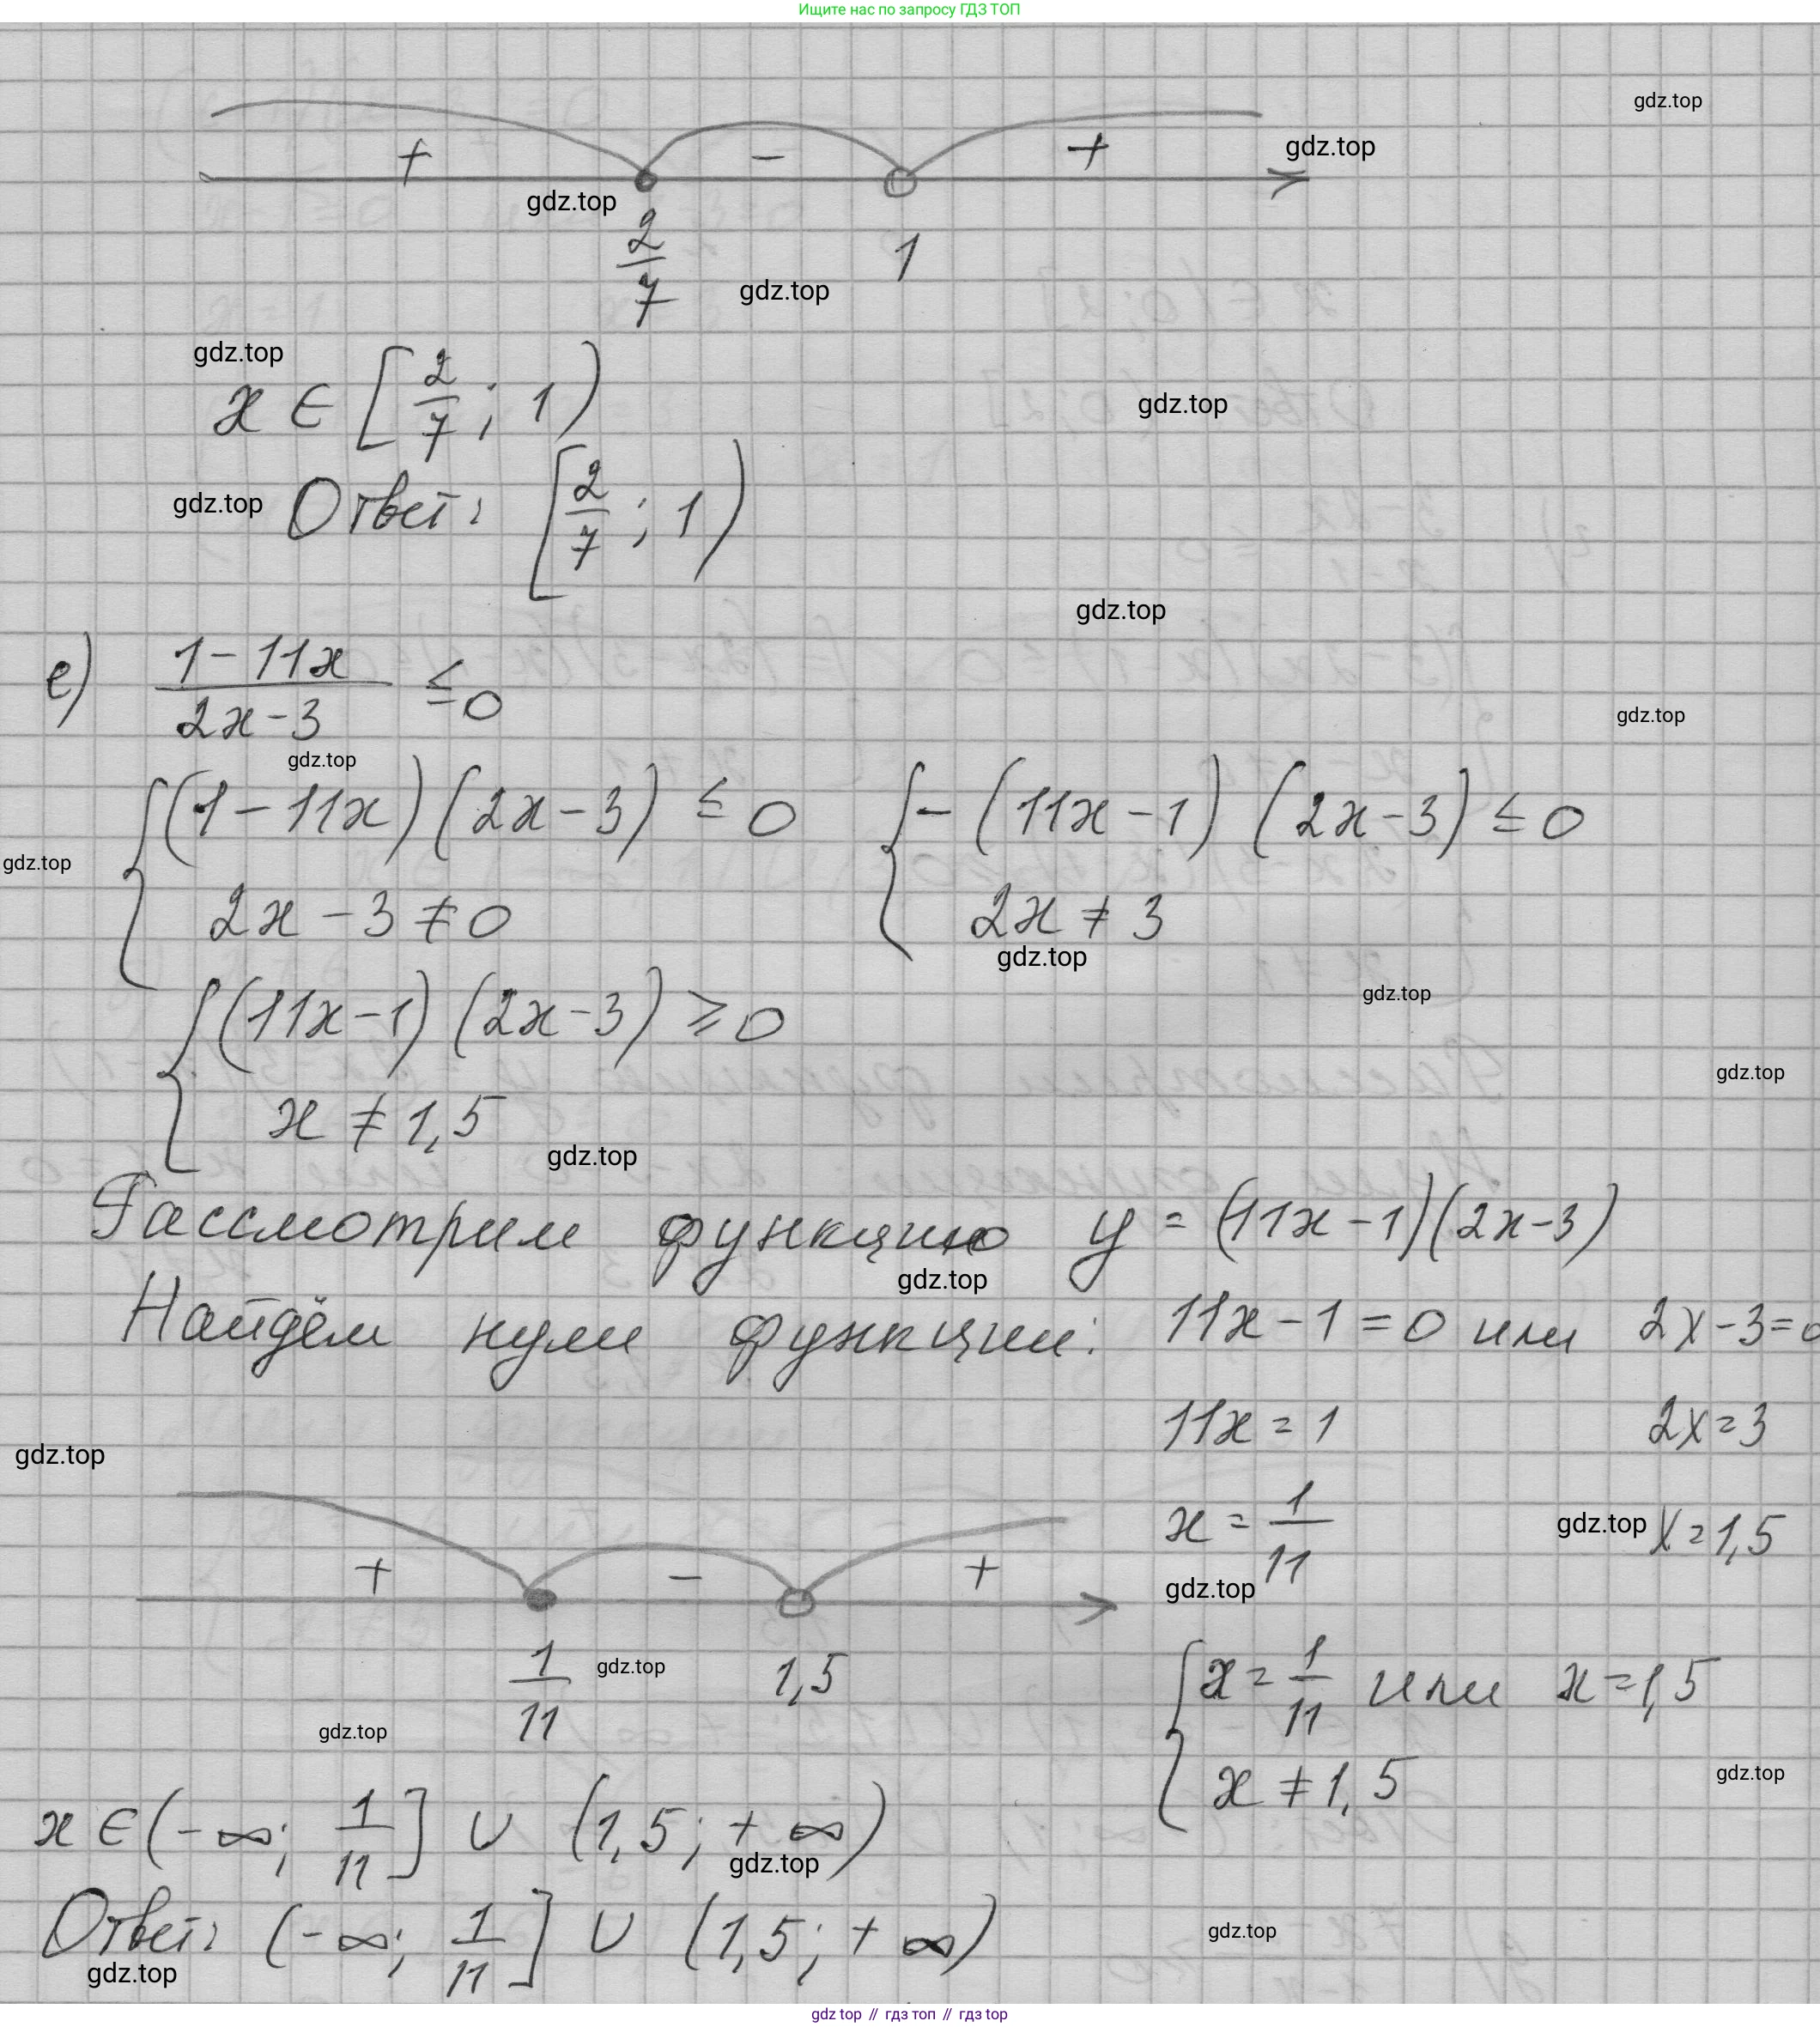 Ищите нас по запросу ГДЗ ТОП
gdz.top
+ − + gdz.top
gdz.top
2/7 1
gdz.top
gdz.top
x ∈ [2/7; 1)
gdz.top
gdz.top Ответ: [2/7; 1)
gdz.top
е) (1 − 11x)/(2x − 3) ≤ 0
gdz.top
gdz.top
{(1 − 11x)(2x − 3) ≤ 0 {−(11x − 1)(2x − 3) ≤ 0
gdz.top
2x − 3 ≠ 0 2x ≠ 3
gdz.top
gdz.top
{(11x − 1)(2x − 3) ≥ 0
gdz.top
x ≠ 1,5
gdz.top
Рассмотрим функцию y = (11x − 1)(2x − 3)
gdz.top
Найдём нули функции: 11x − 1 = 0 или 2x − 3 = 0
11x = 1 2x = 3
gdz.top
x = 1/11 gdz.top x = 1,5
+ − +
gdz.top
1/11 gdz.top 1,5
{x = 1/11 или x = 1,5
gdz.top
x ≠ 1,5
gdz.top
x ∈ (−∞; 1/11] ∪ (1,5; +∞)
gdz.top
Ответ: (−∞; 1/11] ∪ (1,5; +∞)
gdz.top
gdz.top
gdz top // гдз топ // гдз top